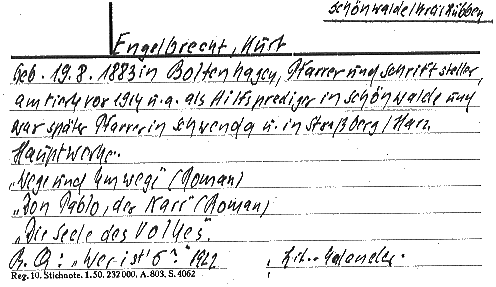 Schönwalde/Kreis Lübben
Engelbrecht, Kurt
Geb. 19.8.1883 in Boltenhagen, Pfarrer und Schriftsteller,
amtierte vor 1914 u.a. als Hilfsprediger in Schönwalde und
war später Pfarrer in Schwenda u. in Straßberg/Harz
Hauptwerke:
„Wege und Umwege" (Roman)
„Don Pablo, der Narr" (Roman)
„Die Seele des Volkes".
B. Q: „Wer ist's?" 1922 , Lit.-Kalender.
Reg. 10. Stichnote. 1.50. 232000, A. 803, S. 4062